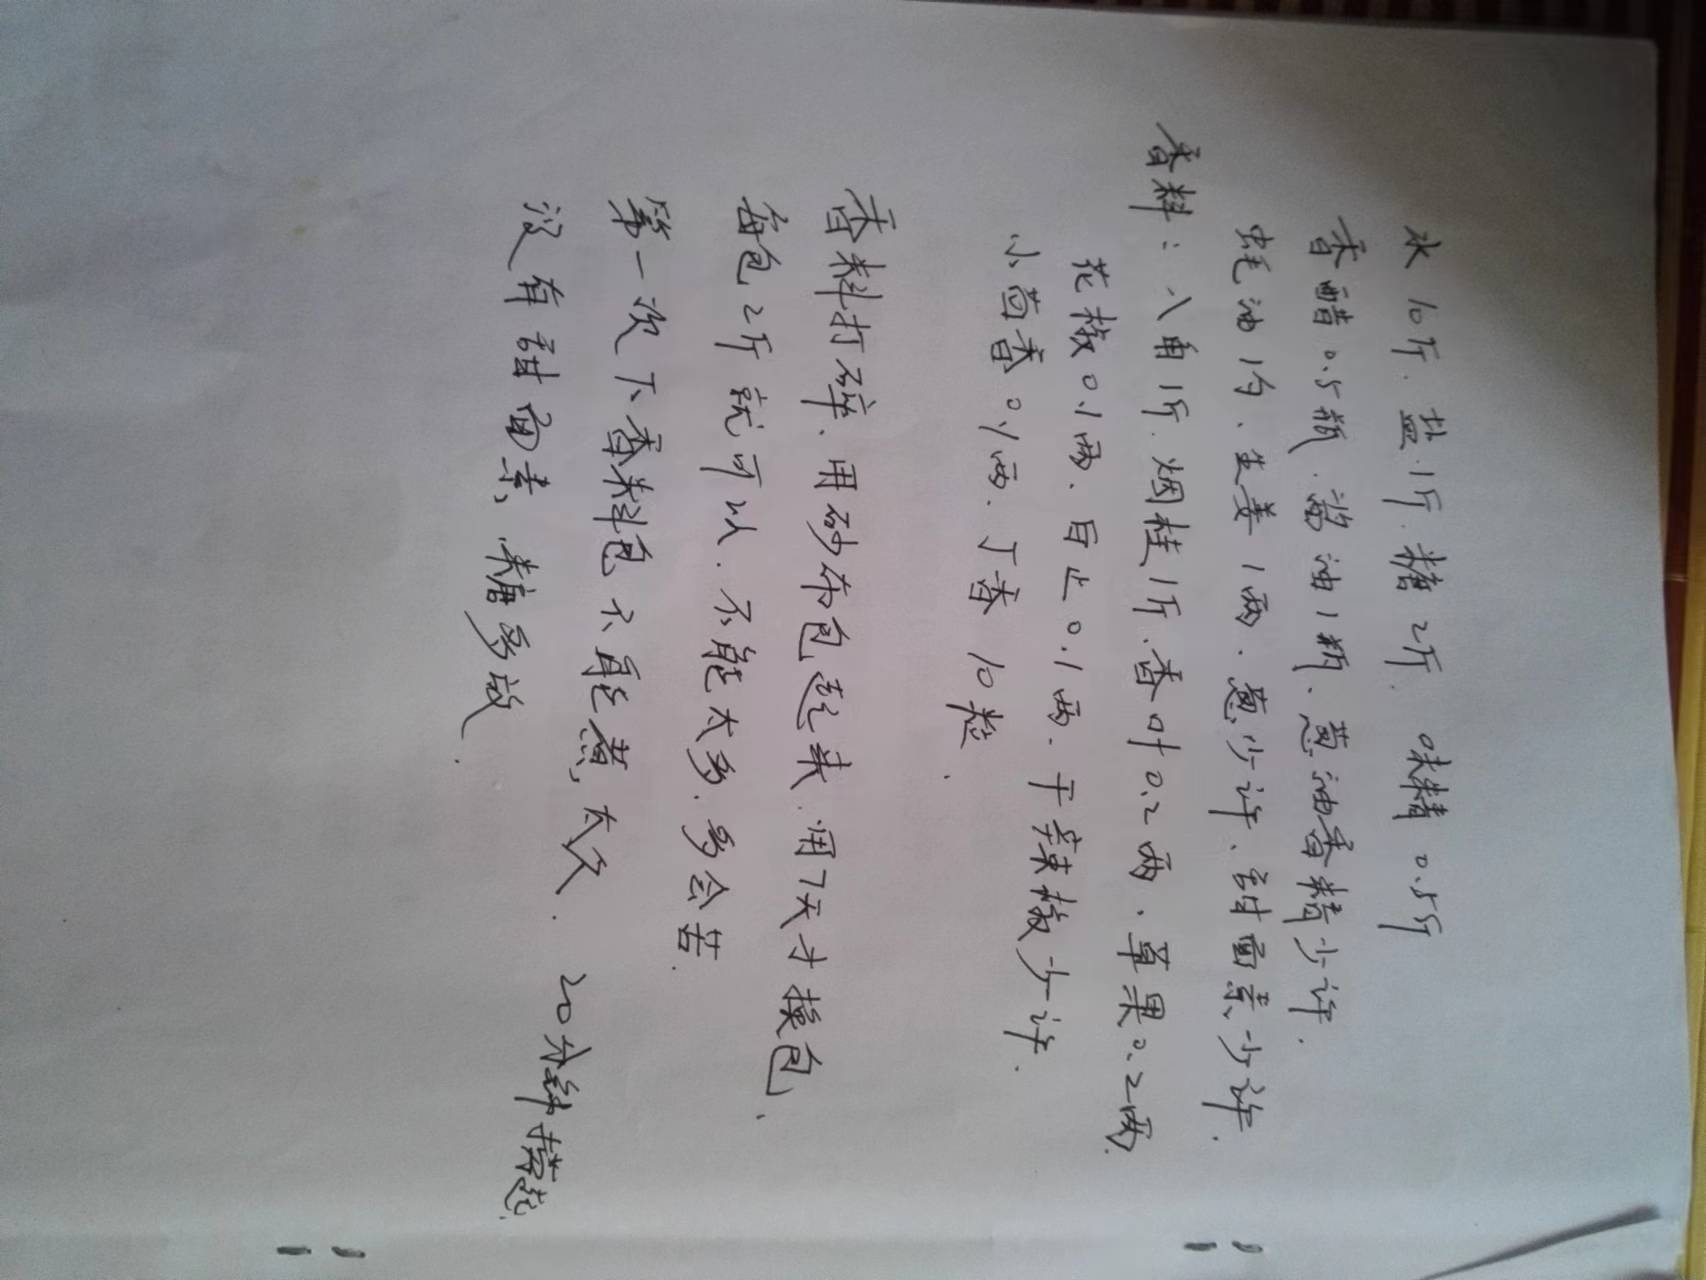 水10斤.盐1斤.糖2斤.味精0.5斤
香醋0.5瓶.酱油1瓶、葱油香精少许.
蚝油1勺.生姜1两.葱少许、甜面素少许.
香料:八角1斤.烟桂1斤.香叶0.2两.草果0.2两.
花椒0.1两.白止0.1两.干辣椒少许.
小茴香0.1两.丁香10粒.
香料打碎.用砂布包起来.用7天才换包.
每包2斤就可以.不能太多.多会苦.
第一次下香料包不能煮太久.20分钟捞起.
没有甜面素,糖多放.